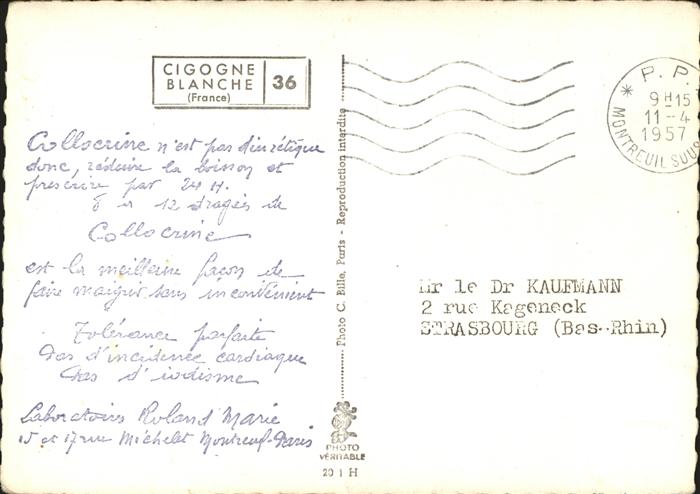 CIGOGNE
BLANCHE
(France)
36
Collocrine n'est pas diurétique
donc, réduire la boisson et
prescrire par 24 H.
8 à 12 dragées de
Collocrine
est la meilleure façon de
faire maigrir sans inconvénient
Tolérance parfaite
Pas d'incidence cardiaque
Pas d'iodisme
Laboratoires Roland Marie
15 et 17 rue Michelet Montreuil-Paris
Photo C. Bille, Paris - Reproduction interdite
PHOTO
VÉRITABLE
20 1 H
P. P.
* 9H15
11-4
1957
MONTREUIL SOUS
Mr le Dr KAUFMANN
2 rue Kageneck
STRASBOURG (Bas-Rhin)